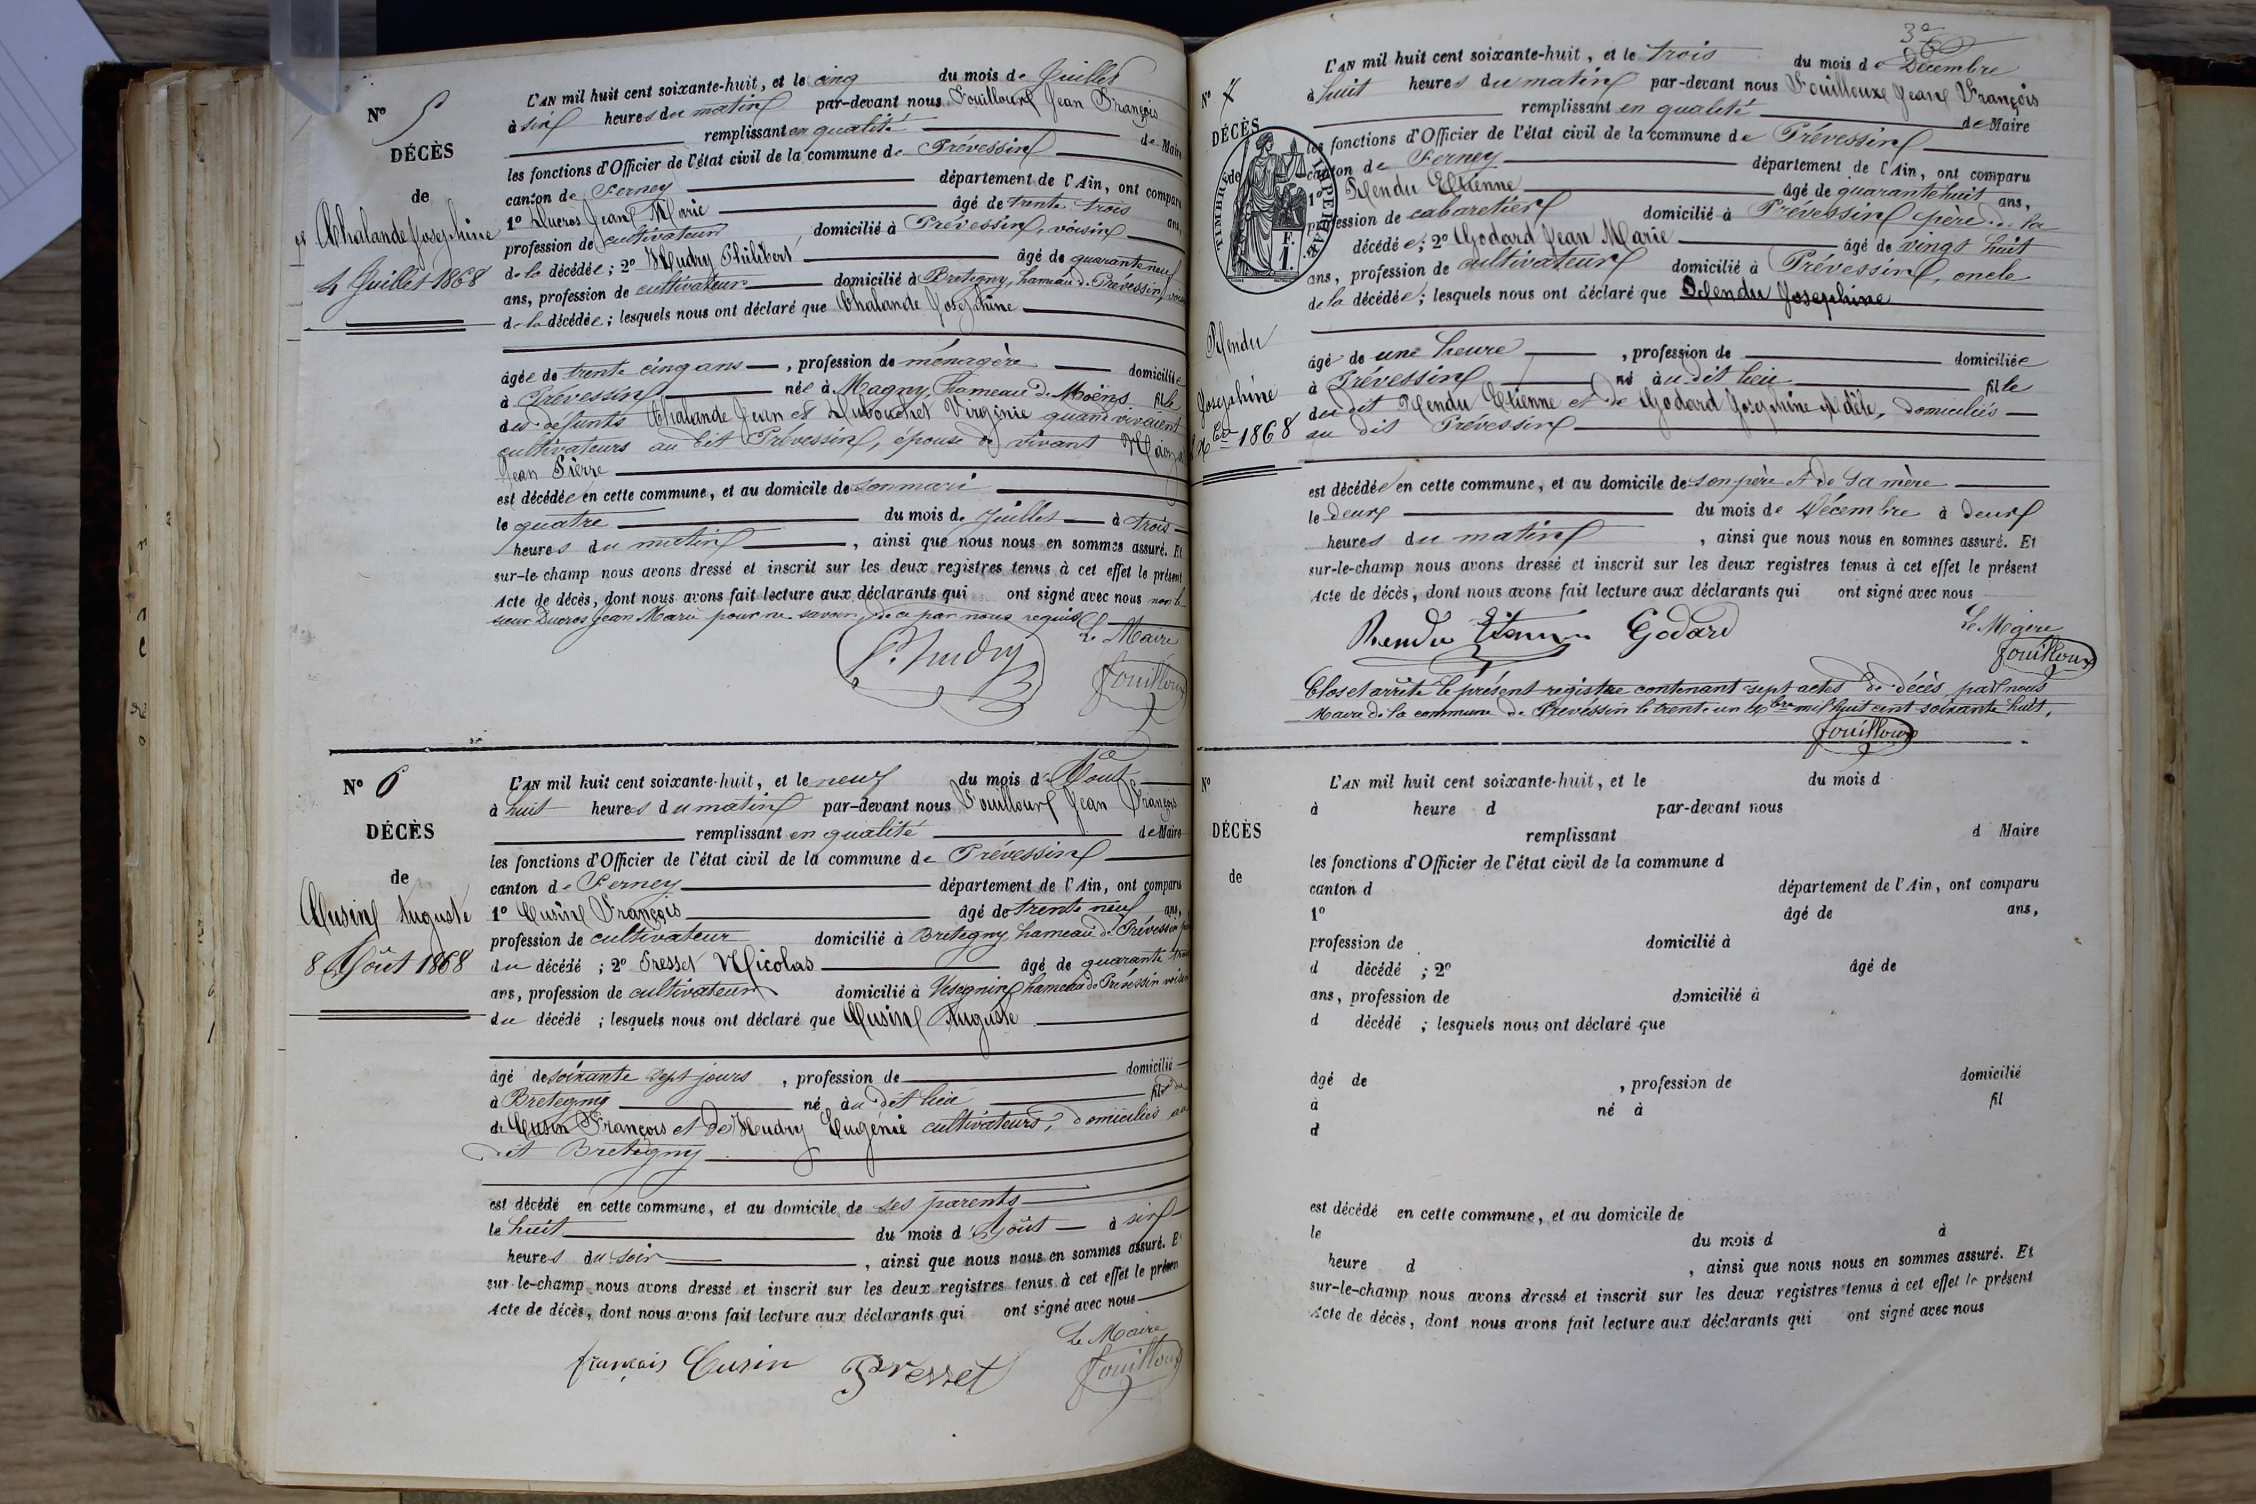 N° 5
DÉCÈS
de
Chalande Josephine
4 Juillet 1868
L'AN mil huit cent soixante-huit, et le cinq du mois de Juillet
à six heures du matin par-devant nous Fouilloux Jean François
remplissant en qualité de Maire
les fonctions d'Officier de l'état civil de la commune de Prévessin
canton de Ferney département de l'Ain, ont comparu
1° Ducros Jean Marie âgé de trente trois ans,
profession de cultivateur domicilié à Prévessin, voisin
de la décédée ; 2° Mudry Philibert âgé de quarante neuf
ans, profession de cultivateur domicilié à Bretigny, hameau de Prévessin, voisin
de la décédée ; lesquels nous ont déclaré que Chalande Josephine
âgée de trente cinq ans, profession de ménagère domiciliée
à Prévessin née à Magny, hameau de Moëns fille
des défunts Chalande Jean et Dubouchet Virginie quand vivaient
cultivateurs au dit Prévessin, épouse de vivant
Jean Pierre
est décédée en cette commune, et au domicile de son mari
le quatre du mois de Juillet à trois
heures du matin, ainsi que nous nous en sommes assuré. Et
sur-le-champ nous avons dressé et inscrit sur les deux registres tenus à cet effet le présent
Acte de décès, dont nous avons fait lecture aux déclarants qui ont signé avec nous non le
sieur Ducros Jean Marie pour ne savoir, de ce par nous requis
Le Maire
P. Mudry
Fouilloux
N° 6
DÉCÈS
de
Cusin Auguste
8 Août 1868
L'AN mil huit cent soixante-huit, et le neuf du mois d'Aout
à huit heures du matin par-devant nous Fouilloux Jean François
remplissant en qualité de Maire
les fonctions d'Officier de l'état civil de la commune de Prévessin
canton de Ferney département de l'Ain, ont comparu
1° Cusin François âgé de trente neuf ans,
profession de cultivateur domicilié à Bretegny hameau de Prévessin
du décédé ; 2° Presset Nicolas âgé de quarante trois
ans, profession de cultivateur domicilié à Vésegnin hameau de Prévessin voisin
du décédé ; lesquels nous ont déclaré que Cusin Auguste
âgé de soixante sept jours, profession de domicilié
à Bretegny né au dit lieu fils du
de Cusin François et de Mudry Eugénie cultivateurs, domiciliés au
dit Bretegny
est décédé en cette commune, et au domicile de ses parents
le huit du mois d'Août à six
heures du soir, ainsi que nous nous en sommes assuré. Et
sur-le-champ nous avons dressé et inscrit sur les deux registres tenus à cet effet le présent
Acte de décès, dont nous avons fait lecture aux déclarants qui ont signé avec nous
Le Maire
français Cusin Presset Fouilloux
N° 7
DÉCÈS
TIMBRE IMPERIAL
F.
1.
Rendu
Josephine
2 Xbre 1868
L'AN mil huit cent soixante-huit, et le trois du mois de Décembre
à huit heures du matin par-devant nous Fouilloux Jean François
remplissant en qualité de Maire
les fonctions d'Officier de l'état civil de la commune de Prévessin
canton de Ferney département de l'Ain, ont comparu
1° Rendu Etienne âgé de quarante huit ans,
profession de cabaretier domicilié à Prévessin père de la
décédée ; 2° Godard Jean Marie âgé de vingt huit
ans, profession de cultivateur domicilié à Prévessin, oncle
de la décédée ; lesquels nous ont déclaré que Rendu Josephine
âgé de une heure, profession de domiciliée
à Prévessin né au dit lieu fille
du dit Rendu Etienne et de Godard Josephine Adèle, domiciliés
au dit Prévessin
est décédée en cette commune, et au domicile de son père et de sa mère
le deux du mois de Décembre à deux
heures du matin, ainsi que nous nous en sommes assuré. Et
sur-le-champ nous avons dressé et inscrit sur les deux registres tenus à cet effet le présent
Acte de décès, dont nous avons fait lecture aux déclarants qui ont signé avec nous
Le Maire
Rendu Etienne Godard Fouilloux
Clos et arrêté le présent registre contenant sept actes de décès, par nous
Maire de la commune de Prévessin le trente un Xbre mil huit cent soixante huit.
Fouilloux
N°
DÉCÈS
de
L'AN mil huit cent soixante-huit, et le du mois d
à heure d par-devant nous
remplissant d Maire
les fonctions d'Officier de l'état civil de la commune d
canton d département de l'Ain, ont comparu
1° âgé de ans,
profession de domicilié à
d décédé ; 2° âgé de
ans, profession de domicilié à
d décédé ; lesquels nous ont déclaré que
âgé de , profession de domicilié
à né à fil
d
est décédé en cette commune, et au domicile de
le du mois d à
heure d , ainsi que nous nous en sommes assuré. Et
sur-le-champ nous avons dressé et inscrit sur les deux registres tenus à cet effet le présent
Acte de décès, dont nous avons fait lecture aux déclarants qui ont signé avec nous